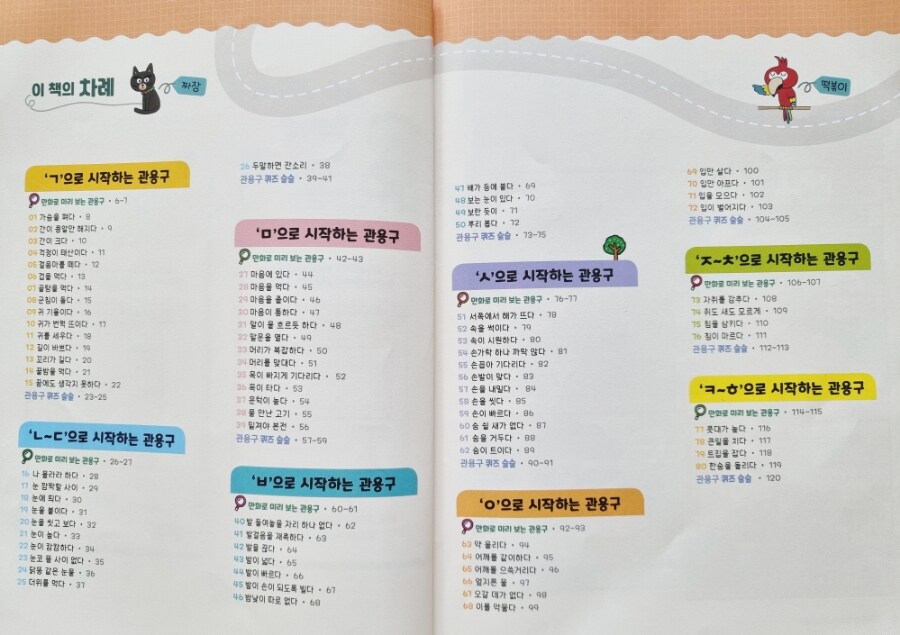 이 책의 차례
짜장
'ㄱ'으로 시작하는 관용구
만화로 미리 보는 관용구 • 6~7
01 가슴을 펴다 • 8
02 간이 콩알만 해지다 • 9
03 간이 크다 • 10
04 걱정이 태산이다 • 11
05 걸음마를 떼다 • 12
06 겁을 먹다 • 13
07 골탕을 먹다 • 14
08 군침이 돌다 • 15
09 귀 기울이다 • 16
10 귀가 번쩍 뜨이다 • 17
11 귀를 세우다 • 18
12 길이 바쁘다 • 19
13 꼬리가 길다 • 20
14 꿀밤을 먹다 • 21
15 끝에도 생각지 못하다 • 22
관용구 퀴즈 술술 • 23~25
'ㄴ~ㄷ'으로 시작하는 관용구
만화로 미리 보는 관용구 • 26~27
16 나 몰라라 하다 • 28
17 눈 깜짝할 사이 • 29
18 눈에 띄다 • 30
19 눈을 붙이다 • 31
20 눈을 씻고 보다 • 32
21 눈이 높다 • 33
22 눈이 캄캄하다 • 34
23 눈코 뜰 사이 없다 • 35
24 닭똥 같은 눈물 • 36
25 더위를 먹다 • 37
26 두말하면 잔소리 • 38
관용구 퀴즈 술술 • 39~41
'ㅁ'으로 시작하는 관용구
만화로 미리 보는 관용구 • 42~43
27 마음에 있다 • 44
28 마음을 먹다 • 45
29 마음을 졸이다 • 46
30 마음이 통하다 • 47
31 말이 물 흐르듯 하다 • 48
32 말문을 열다 • 49
33 머리가 복잡하다 • 50
34 머리를 맞대다 • 51
35 목이 빠지게 기다리다 • 52
36 목이 타다 • 53
37 문턱이 높다 • 54
38 물 만난 고기 • 55
39 밑져야 본전 • 56
관용구 퀴즈 술술 • 57~59
'ㅂ'으로 시작하는 관용구
만화로 미리 보는 관용구 • 60~61
40 발 들여놓을 자리 하나 없다 • 62
41 발걸음을 재촉하다 • 63
42 발을 끊다 • 64
43 발이 넓다 • 65
44 발이 빠르다 • 66
45 발이 손이 되도록 빌다 • 67
46 밤낮이 따로 없다 • 68
떡볶이
47 배가 등에 붙다 • 69
48 보는 눈이 있다 • 70
49 보란 듯이 • 71
50 뿌리 뽑다 • 72
관용구 퀴즈 술술 • 73~75
'ㅅ'으로 시작하는 관용구
만화로 미리 보는 관용구 • 76~77
51 서쪽에서 해가 뜨다 • 78
52 속을 썩이다 • 79
53 속이 시원하다 • 80
54 손가락 하나 까딱 않다 • 81
55 손꼽아 기다리다 • 82
56 손발이 맞다 • 83
57 손을 내밀다 • 84
58 손을 씻다 • 85
59 손이 빠르다 • 86
60 숨 쉴 새가 없다 • 87
61 숨을 거두다 • 88
62 숨이 트이다 • 89
관용구 퀴즈 술술 • 90~91
'ㅇ'으로 시작하는 관용구
만화로 미리 보는 관용구 • 92~93
63 약 올리다 • 94
64 어깨를 같이하다 • 95
65 어깨를 으쓱거리다 • 96
66 얼지론 물 • 97
67 오갈 데가 없다 • 98
68 이를 악물다 • 99
69 입만 살다 • 100
70 입만 아프다 • 101
71 입을 모으다 • 102
72 입이 벌어지다 • 103
관용구 퀴즈 술술 • 104~105
'ㅈ~ㅊ'으로 시작하는 관용구
만화로 미리 보는 관용구 • 106~107
73 자취를 감추다 • 108
74 쥐도 새도 모르게 • 109
75 침을 삼키다 • 110
76 침이 마르다 • 111
관용구 퀴즈 술술 • 112~113
'ㅋ~ㅎ'으로 시작하는 관용구
만화로 미리 보는 관용구 • 114~115
77 콧대가 높다 • 116
78 큰일을 치다 • 117
79 트집을 잡다 • 118
80 한숨을 돌리다 • 119
관용구 퀴즈 술술 • 120